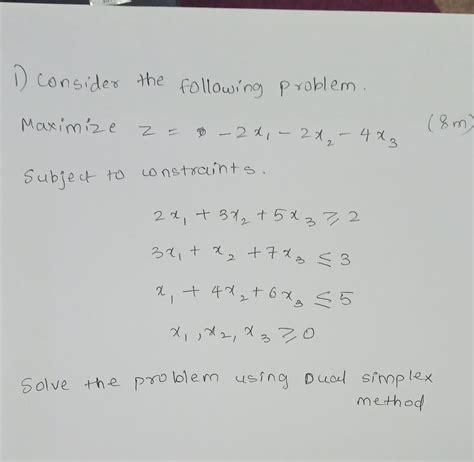 1) Consider the following problem.
Maximize Z = -2x₁ - 2x₂ - 4x₃ (8m)
Subject to constraints.
2x₁ + 3x₂ + 5x₃ ⩾ 2
3x₁ + x₂ + 7x₃ ≤ 3
x₁ + 4x₂ + 6x₃ ≤ 5
x₁, x₂, x₃ ⩾ 0
Solve the problem using Dual simplex
method